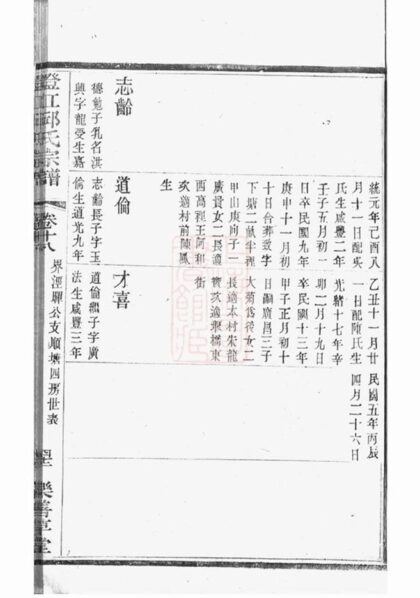 統元年己酉八
月十一日配吳
氏生咸豐二年
壬子五月初一
日卒民國九年
庚申十一月初
十日合葬戤字
下塘二畝半裡
甲山庚向子一
廣貴女二長適
西高裡王阿和
次適村前陳鳳
生
乙丑十一月廿
一日配陳氏生
光緒十七年辛
卯二月十九日
卒民國十三年
甲子正月初十
日嗣廣昌三子
大菊岱後女二
長適本村朱龍
寶次適張橋東
街
民國五年丙辰
四月二十六日
志齡
德子乳名洪
興字龍受生嘉
道倫
志齡長子字玉
倫生道光九年
才喜
道倫繼子字廣
法生咸豐三年
澄江邱氏宗譜
卷十八
界涇驛公支順塘四房世表
樂善堂